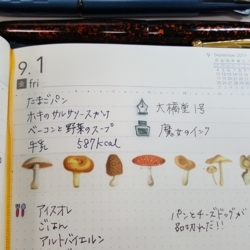 9.1
fri
たまごパン
ホキのサルサソースがけ
ベーコンと野菜のスープ
牛乳 587kcal
大橋堂1号
魔女のインク
アイスオレ
ごはん
アルトバイエルン
パンとチーズドッグが
品切れだ!!